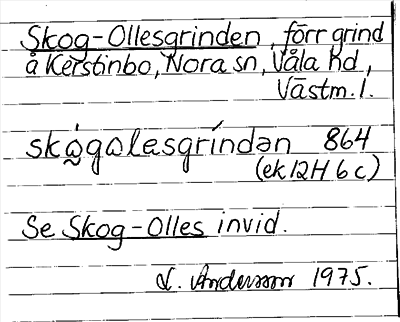 Skog-Ollesgrinden, förr grind
å Kerstinbo, Nora sn, Våla hd,
Västm. l.
skὼgωlesgríndən 864
(ek 12H 6 c)
Se Skog-Olles invid.
L. Andersson 1975.